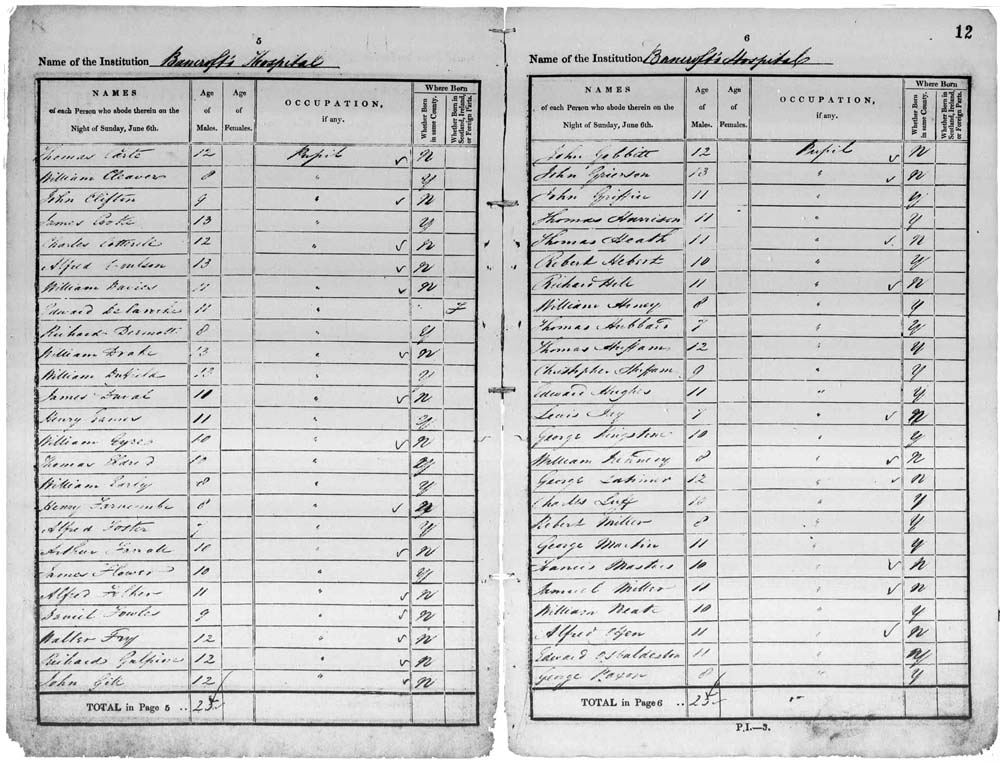 5
Name of the Institution Bancroft's Hospital
NAMES
of each Person who abode therein on the
Night of Sunday, June 6th.
Age
of
Males.
Age
of
Females.
OCCUPATION,
if any.
Where Born
Whether Born
in same County.
Whether Born in
Scotland, Ireland,
or Foreign Parts.
Thomas 12 Pupil N
William Cleaver 8 " Y
John Clifton 9 " N
James Cooke 13 " Y
Charles 12 " N
Alfred Coulson 13 " N
William Davies 11 " N
Edward 11 " F
Richard 8 " Y
William Drake 13 " N
William 12 " Y
James 10 " N
Henry 11 " Y
William Eyre 10 " N
Thomas 10 " Y
William Early 8 " Y
Henry 8 " N
Alfred Foster " Y
Arthur 10 " N
James Flower 10 " Y
Alfred 11 " N
Daniel Fowles 9 " N
Walter Fry 12 " N
Richard Galpine 12 " N
John 12 " N
TOTAL in Page 5 .. 25
12
6
Name of the Institution Bancroft's Hospital
NAMES
of each Person who abode therein on the
Night of Sunday, June 6th.
Age
of
Males.
Age
of
Females.
OCCUPATION,
if any.
Where Born
Whether Born
in same County.
Whether Born in
Scotland, Ireland,
or Foreign Parts.
John Gobbitt 12 Pupil N
John Grierson 13 " N
John Griffin 11 " Y
Thomas Harrison 11 " Y
Thomas Heath 11 " N
Robert Hebert 10 " Y
Richard 11 " N
William 8 " Y
Thomas Hubbard 7 " Y
Thomas 12 " Y
Christopher 9 " Y
Edward Hughes 11 " Y
Lewis 7 " N
George 10 " Y
William 8 " N
George Latimer 12 " N
Charles " Y
Robert Miller 8 " Y
George Martin 11 " Y
Francis Masters 10 " N
Samuel Miller 11 " N
William Neat 10 " Y
Alfred 11 " N
Edward Osbaldeston 11 " Y
George Paxon 8 " Y
TOTAL in Page 6 .. 25
P.I.—3.